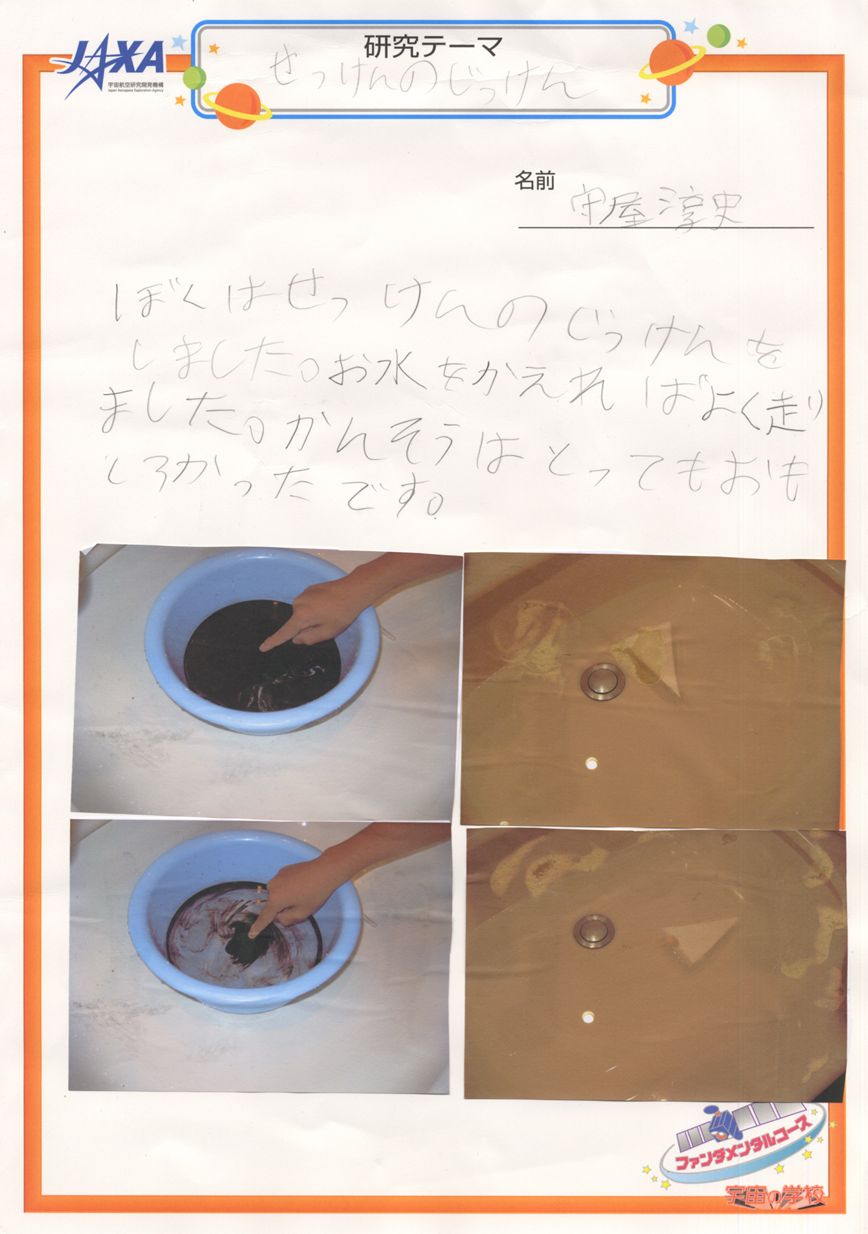 JAXA
宇宙航空研究開発機構
Japan Aerospace Exploration Agency
研究テーマ
せっけんのじっけん
名前
守屋淳史
ぼくはせっけんのじっけんを
しました。お水をかえればよく走り
ました。かんそうはとってもおも
しろかったです。
ファンダメンタルコース
宇宙の学校